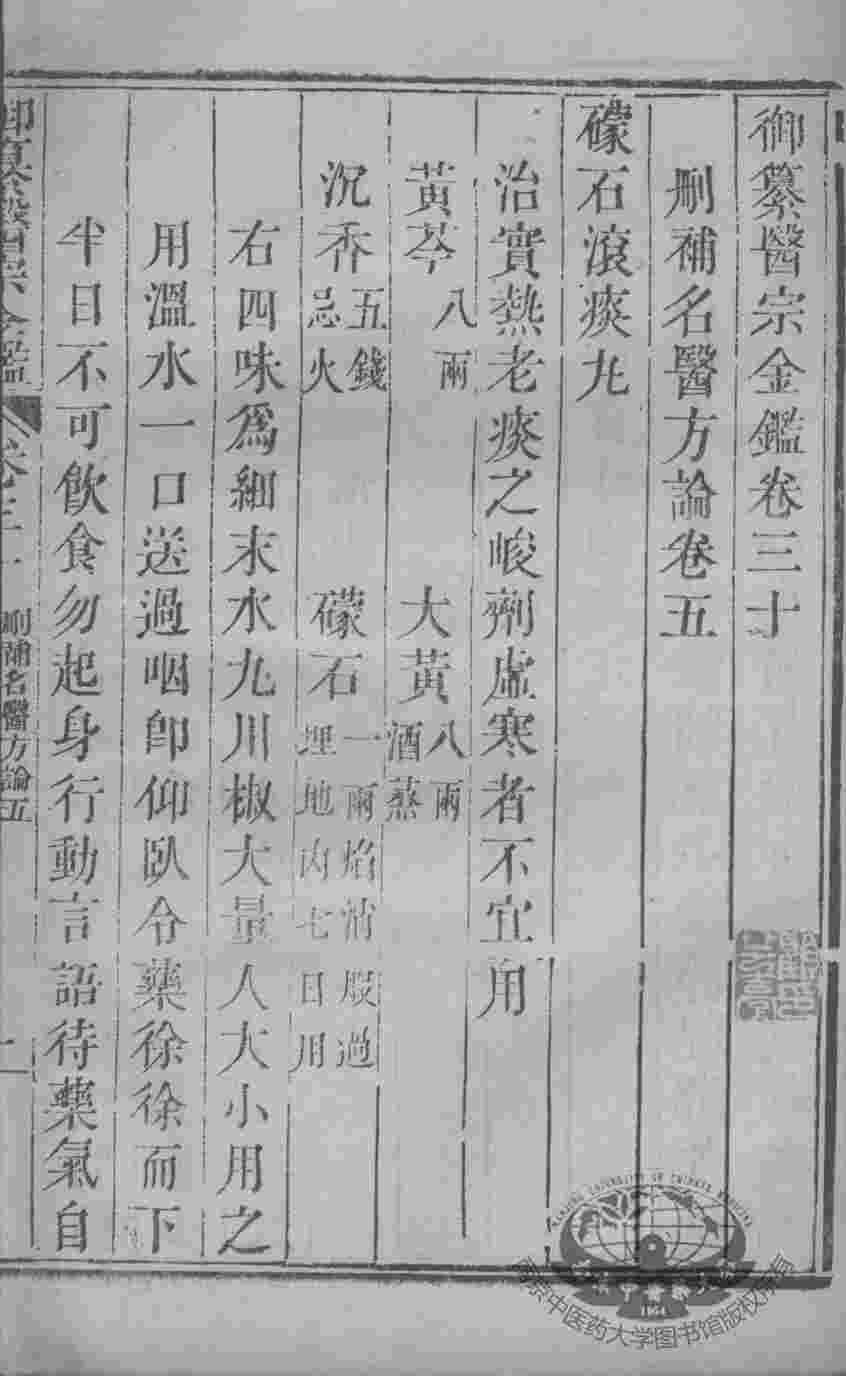 御纂醫宗金鑑卷三十
刪補名醫方論卷五
礞石滾痰九
治實熱老痰之峻劑虛寒者不宜用
黃芩八兩 大黃八兩酒蒸
沉香五錢忌火 礞石一兩焰硝煅過埋地內七日用
右四味爲細末水九川椒大量人大小用之
用溫水一口送過咽卽仰臥令藥徐徐而下
半日不可飲食勿起身行動言語待藥氣自
御纂醫宗金鑑 卷三十 刪補名醫方論五 一
NANJING UNIVERSITY OF CHINESE MEDICINE
1954
南京中医药大学图书馆版权所有